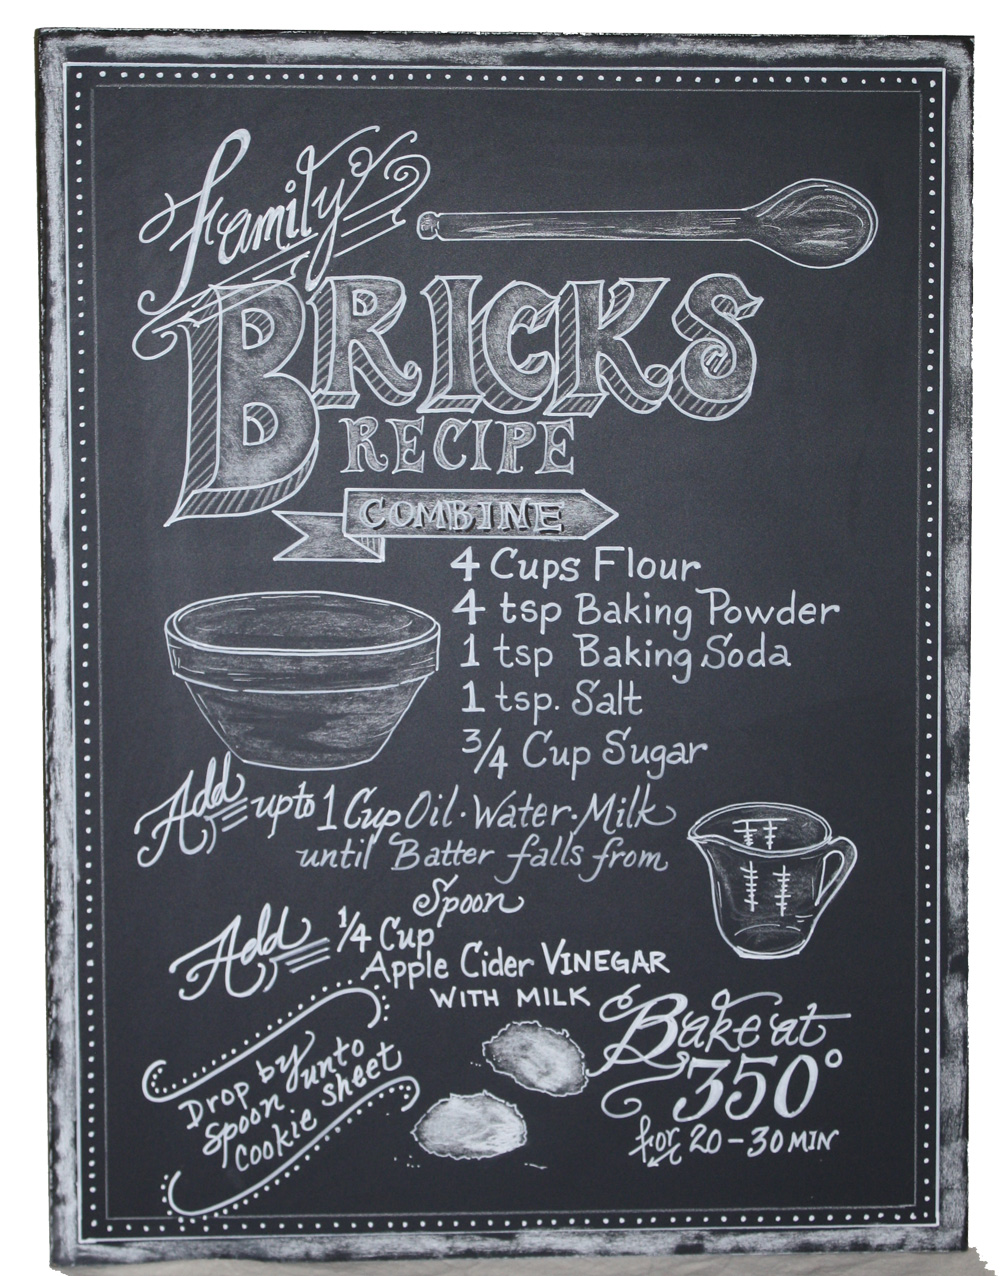 Family
BRICKS
RECIPE
COMBINE
4 Cups Flour
4 tsp Baking Powder
1 tsp Baking Soda
1 tsp. Salt
3/4 Cup Sugar
Add upto 1 Cup Oil·Water·Milk
until Batter falls from
Spoon
Add 1/4 Cup
Apple Cider VINEGAR
WITH MILK
Drop by
Spoon unto
Cookie Sheet
Bake at
350°
for 20-30 MIN